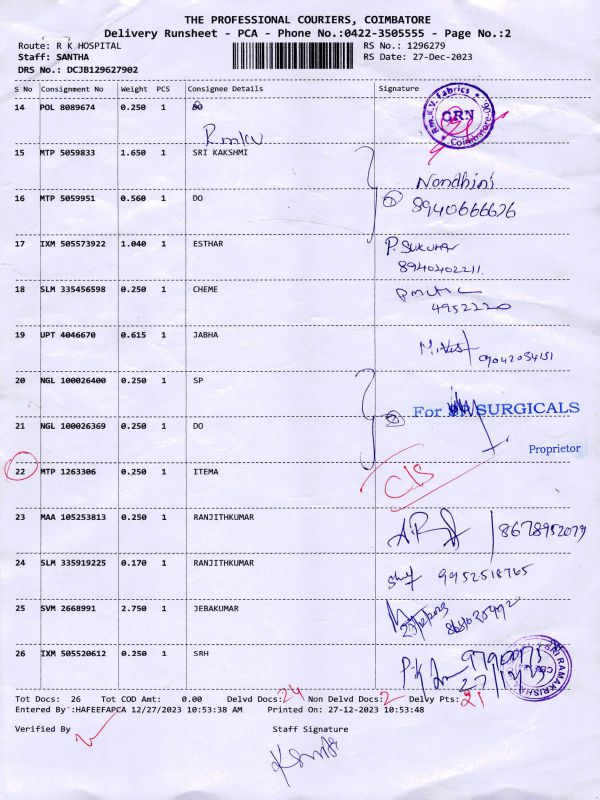 THE PROFESSIONAL COURIERS, COIMBATORE
Delivery Runsheet - PCA - Phone No.:0422-3505555 - Page No.:2
Route: R K HOSPITAL RS No.: 1296279
Staff: SANTHA RS Date: 27-Dec-2023
DRS No.: DCJB129627902
S No Consignment No Weight PCS Consignee Details Signature
14 POL 8089674 0.250 1
Rmkv
R.m.K.V. Fabrics Coimbatore GRN
15 MTP 5059833 1.650 1 SRI KAKSHMI
Nandhini
16 MTP 5059951 0.560 1 DO 2 8940666626
17 IXM 505573922 1.040 1 ESTHAR P. Sukumar
8940402211.
18 SLM 335456598 0.250 1 CHEME
4952220
19 UPT 4046670 0.615 1 JABHA 9042054151
20 NGL 100026400 0.250 1 SP
For SURGICALS
21 NGL 100026369 0.250 1 DO 2
Proprietor
22 MTP 1263306 0.250 1 ITEMA C/S
23 MAA 105253813 0.250 1 RANJITHKUMAR 8678952079
24 SLM 335919225 0.170 1 RANJITHKUMAR 9952518765
25 SVM 2668991 2.750 1 JEBAKUMAR
26 IXM 505520612 0.250 1 SRH
SRI RAMAKRISHNA
Tot Docs: 26 Tot COD Amt: 0.00 Delvd Docs: 24 Non Delvd Docs: 2 Delvy Pts: 21
Entered By :HAFEEFAPCA 12/27/2023 10:53:38 AM Printed On: 27-12-2023 10:53:48
Verified By Staff Signature